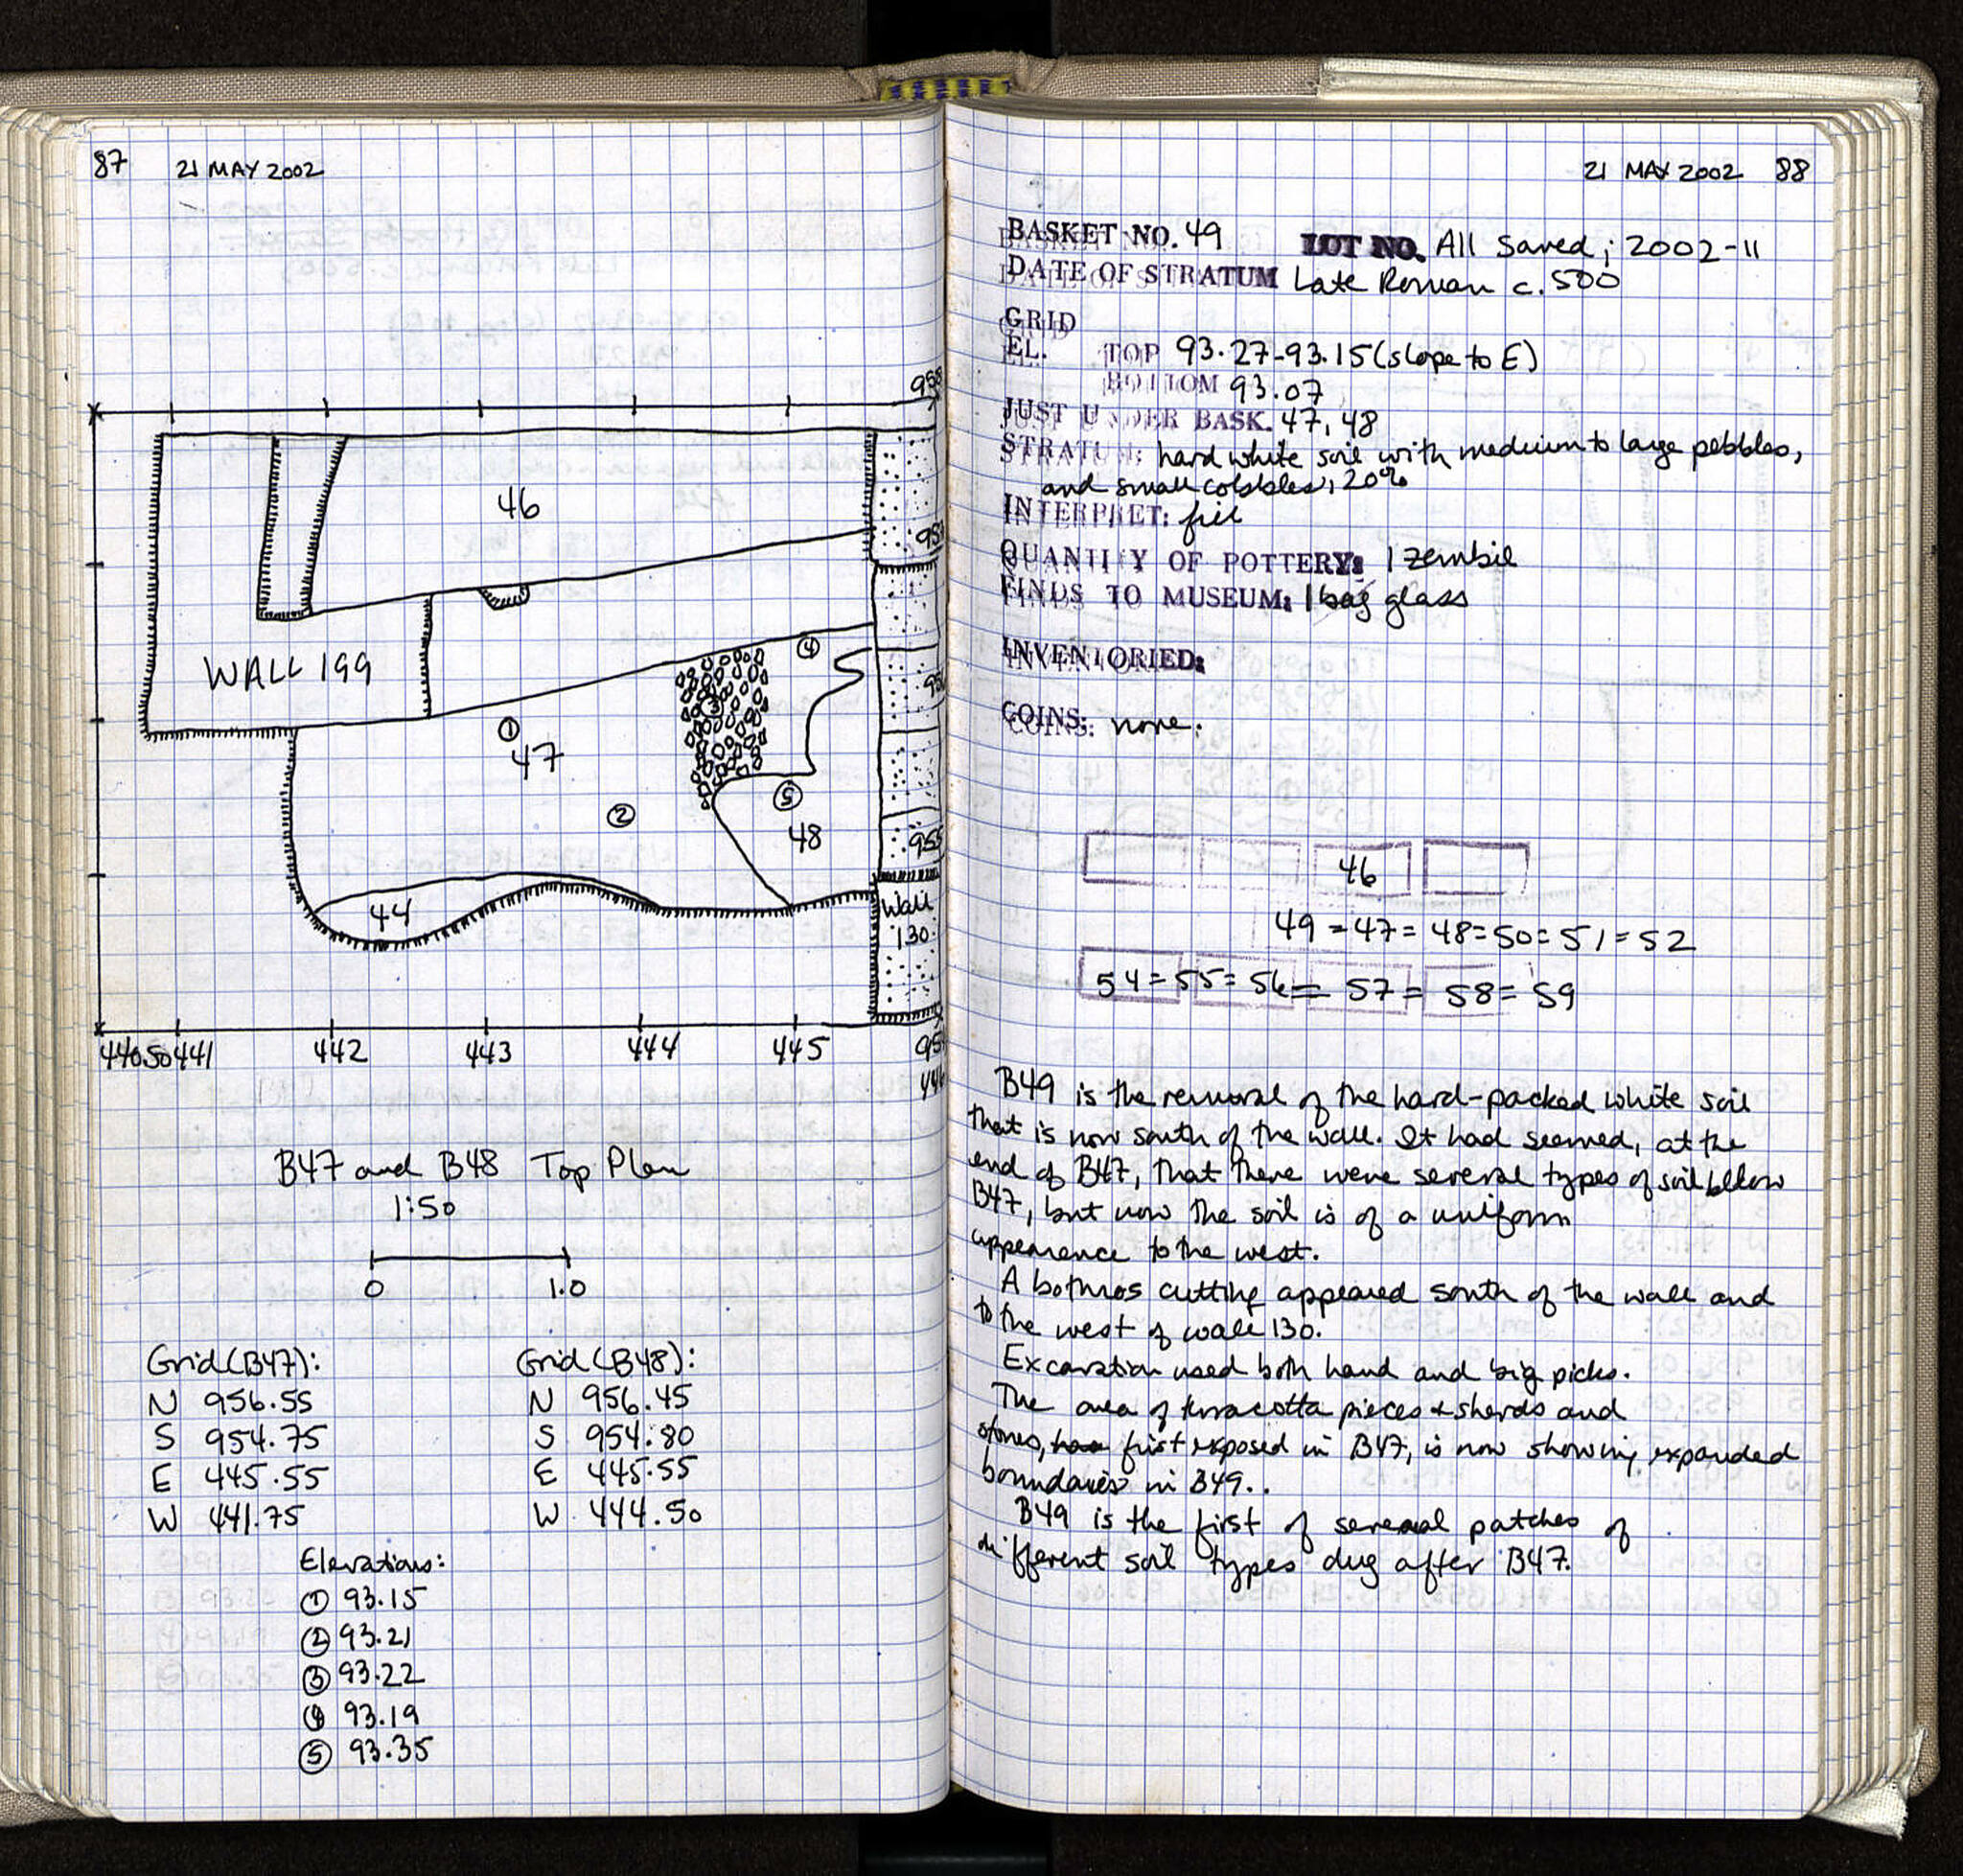 87 21 MAY 2002
46
WALL 199
①
47
②
③
④
⑤
48
44
Wall
130
440.50 441 442 443 444 445
B47 and B48 Top Plan
1:50
0 1.0
Grid (B47):
N 956.55
S 954.75
E 445.55
W 441.75
Grid (B48):
N 956.45
S 954.80
E 445.55
W 444.50
Elevations:
① 93.15
② 93.21
③ 93.22
④ 93.19
⑤ 93.35
21 MAY 2002 88
BASKET NO. 49 LOT NO. All Saved; 2002-11
DATE OF STRATUM Late Roman c. 500
GRID
EL. TOP 93.27-93.15 (slope to E)
BOTTOM 93.07
JUST UNDER BASK. 47, 48
STRATUM: hard white soil with medium to large pebbles,
and small cobbles, 20%
INTERPRET: fill
QUANTITY OF POTTERY: 1 zembil
FINDS TO MUSEUM: 1 bag glass
INVENTORIED:
COINS: none.
46
49 = 47 = 48 = 50 = 51 = 52
54 = 55 = 56 = 57 = 58 = 59
B49 is the removal of the hard-packed white soil
that is now south of the wall. It had seemed, at the
end of B47, that there were several types of soil below
B47, but now the soil is of a uniform
appearence to the west.
A bothros cutting appeared south of the wall and
to the west of wall 130.
Excavation used both hand and big picks.
The area of terracotta pieces + sherds and
stones, first exposed in B47, is now showing expanded
boundaries in B49..
B49 is the first of several patches of
different soil types dug after B47.